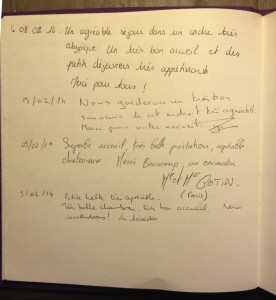 08.02.14. Un agréable séjour dans un cadre très
atypique. Un très bon accueil et des
petits déjeuners très appétissants
Merci pour tous !
09/02/14 Nous garderons un très bon
souvenir de cet endroit très agréable
Merci pour votre accueil
09/02/14 Superbe accueil, très belle prestation, agréable
chaleureux Merci Beaucoup, on reviendra
Mr et Mme
9/02/14 Petite halte très agréable. (Paris)
Très belle chambre, très bon accueil Nous
reviendrons !